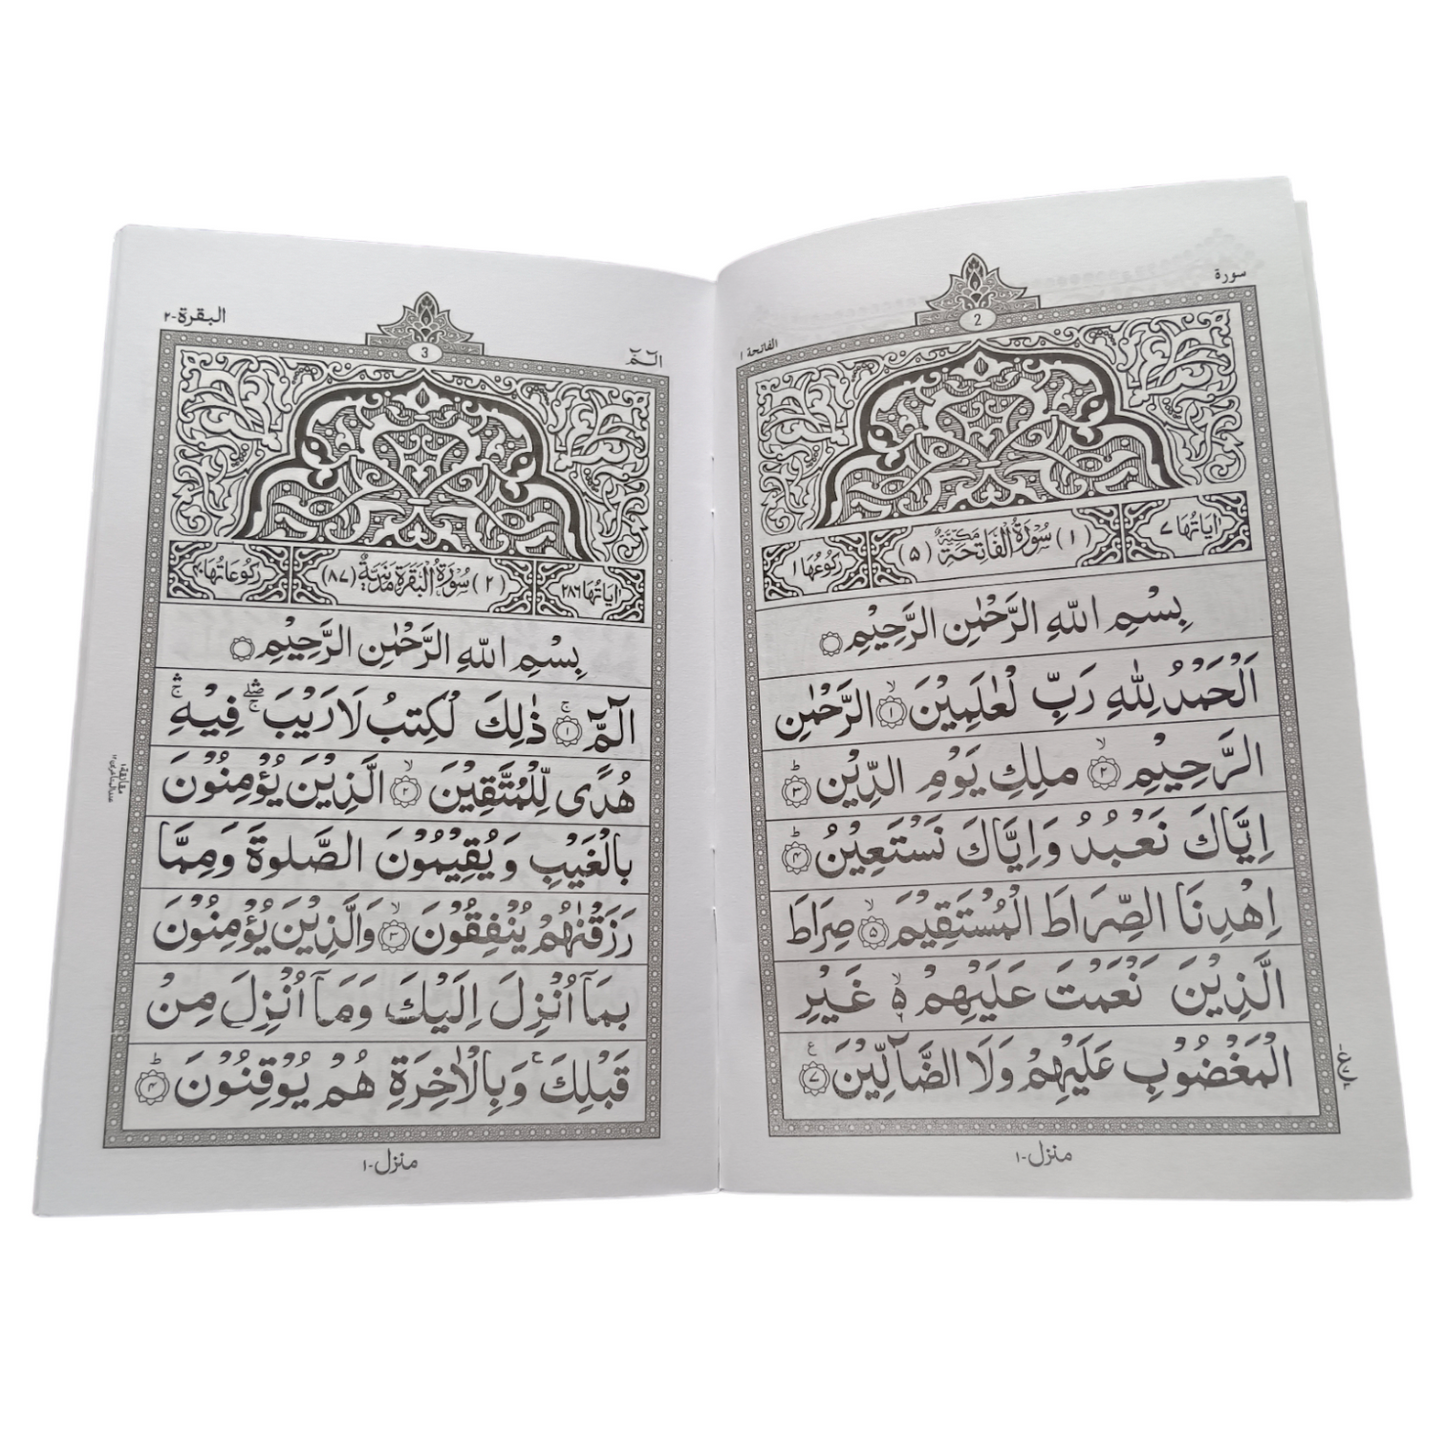 سورة
2
الفاتحة ١
اٰيَاتُهَا ٧ (١) سُوْرَةُ الْفَاتِحَةِ مَكِّيَّةٌ (٥) رُكُوْعُهَا ١
بِسْمِ اللّٰهِ الرَّحْمٰنِ الرَّحِيْمِ
اَلْحَمْدُ لِلّٰهِ رَبِّ لْعٰلَمِيْنَ ۙ﴿١﴾ الرَّحْمٰنِ
الرَّحِيْمِ ۙ﴿٢﴾ مٰلِكِ يَوْمِ الدِّيْنِ ؕ﴿٣﴾
اِيَّاكَ نَعْبُدُ وَاِيَّاكَ نَسْتَعِيْنُ ؕ﴿٤﴾
اِهْدِنَا الصِّرَاطَ الْمُسْتَقِيْمَ ۙ﴿٥﴾ صِرَاطَ
الَّذِيْنَ نْعَمْتَ عَلَيْهِمْ ۙ۬ ٦ غَيْرِ
الْمَغْضُوْبِ عَلَيْهِمْ وَلَا الضَّآلِّيْنَ ﴿٧﴾ ع
منزل-١
الٓـمّٓ
3
البقرة-٢
اٰيَاتُهَا ٢٨٦ (٢) سُوْرَةُ الْبَقَرَةِ مَدَنِيَّةٌ (٨٧) رُكُوْعَاتُهَا ٤٠
بِسْمِ اللّٰهِ الرَّحْمٰنِ الرَّحِيْمِ
الٓمّٓ ۚ﴿١﴾ ذٰلِكَ لْكِتٰبُ لَا رَيْبَ ۛۖۚ فِيْهِ ۛۚ
هُدًى لِّلْمُتَّقِيْنَ ۙ﴿٢﴾ الَّذِيْنَ يُؤْمِنُوْنَ
بِالْغَيْبِ وَيُقِيْمُوْنَ الصَّلٰوةَ وَمِمَّا
رَزَقْنٰهُمْ يُنْفِقُوْنَ ۙ﴿٣﴾ وَالَّذِيْنَ يُؤْمِنُوْنَ
بِمَآ اُنْزِلَ اِلَيْكَ وَمَآ اُنْزِلَ مِنْ
قَبْلِكَ ۚ وَبِالْاٰخِرَةِ هُمْ يُوْقِنُوْنَ ؕ﴿٤﴾
منزل-١